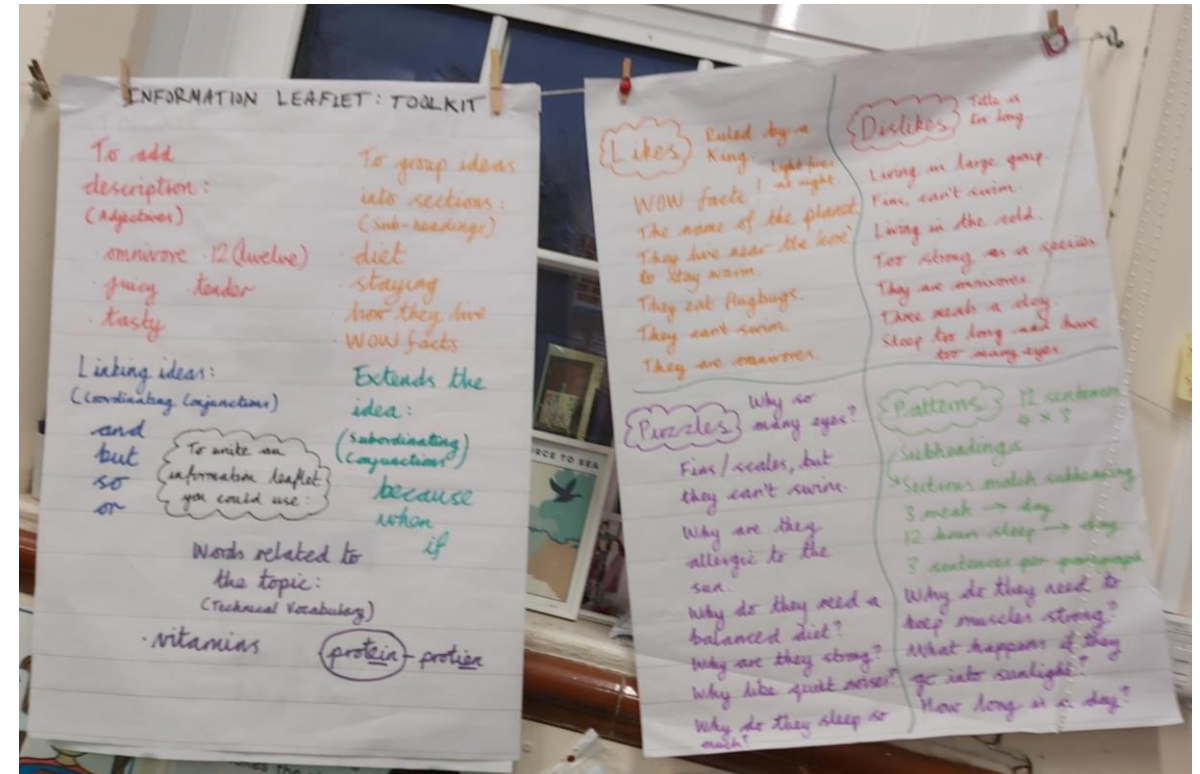 INFORMATION LEAFLET: TOOLKIT
To add
description:
(Adjectives)
· omnivore · 12 (twelve)
· juicy tender
· tasty
To group ideas
into sections:
(Sub-headings)
· diet
staying
· how they live
· WOW facts
Linking ideas:
(Coordinating Conjunctions)
and
but
so
or
To write an
information leaflet
you could use:
Extends the
idea:
(Subordinating
Conjunctions)
because
when
if
Words related to
the topic:
(Technical Vocabulary)
· vitamins
protein - protien
Likes
Ruled by a
King.
Light fires
at night.
WOW facts!
The name of the planet
They live near the
to stay warm.
They eat flugbugs.
They can't swim.
They are omnivores.
Dislikes
Title is
too long.
Living in large group.
Fins, can't swim.
Living in the cold.
Too strong as a species
They are omnivores.
Three meals a day.
Sleep too long and have
too many eyes.
Puzzles
Why so
many eyes?
Fins/scales, but
they can't swim.
Why are they
allergic to the
sun.
Why do they need a
balanced diet?
Why are they strong?
Why like quiet noises?
Why do they sleep so
much?
Patterns
12 sentences
4 x 3
Subheadings
Sections match subheading
3 meals → day
12 hours sleep → day
3 sentences per paragraph
Why do they need to
keep muscles strong?
What happens if they
go into sunlight?
How long is a day?
RCE TO SEA